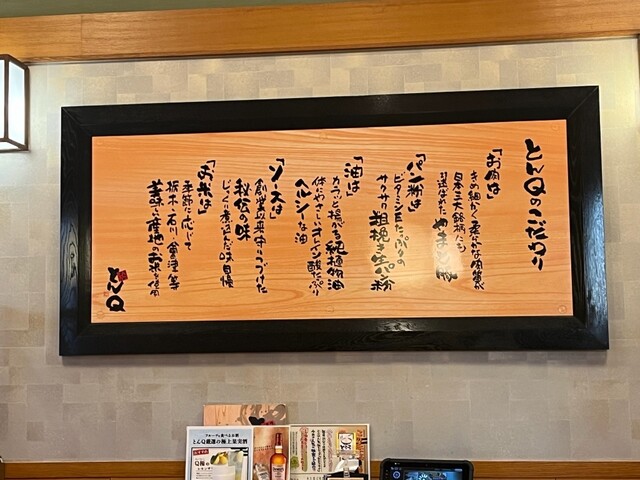 とんQのこだわり
「お肉は」
きめ細かく柔らかな肉質が
日本三大銘柄たる
「パン粉は」
ビタミンEたっぷりの
サクサク粗挽き生パン粉
「油は」
カラッと揚がる純植物油
体にやさしいオレイン酸たっぷり
ヘルシーな油
「ソースは」
創業以来守りつづけた
秘伝の味
じっくり煮込んだ味自慢
「お米は」
季節に応じて
栃木・石川・会津等
美味しい産地のお米を使用
とんQ
フルーツと食べるお酢
とんQ厳選の極上果実酒